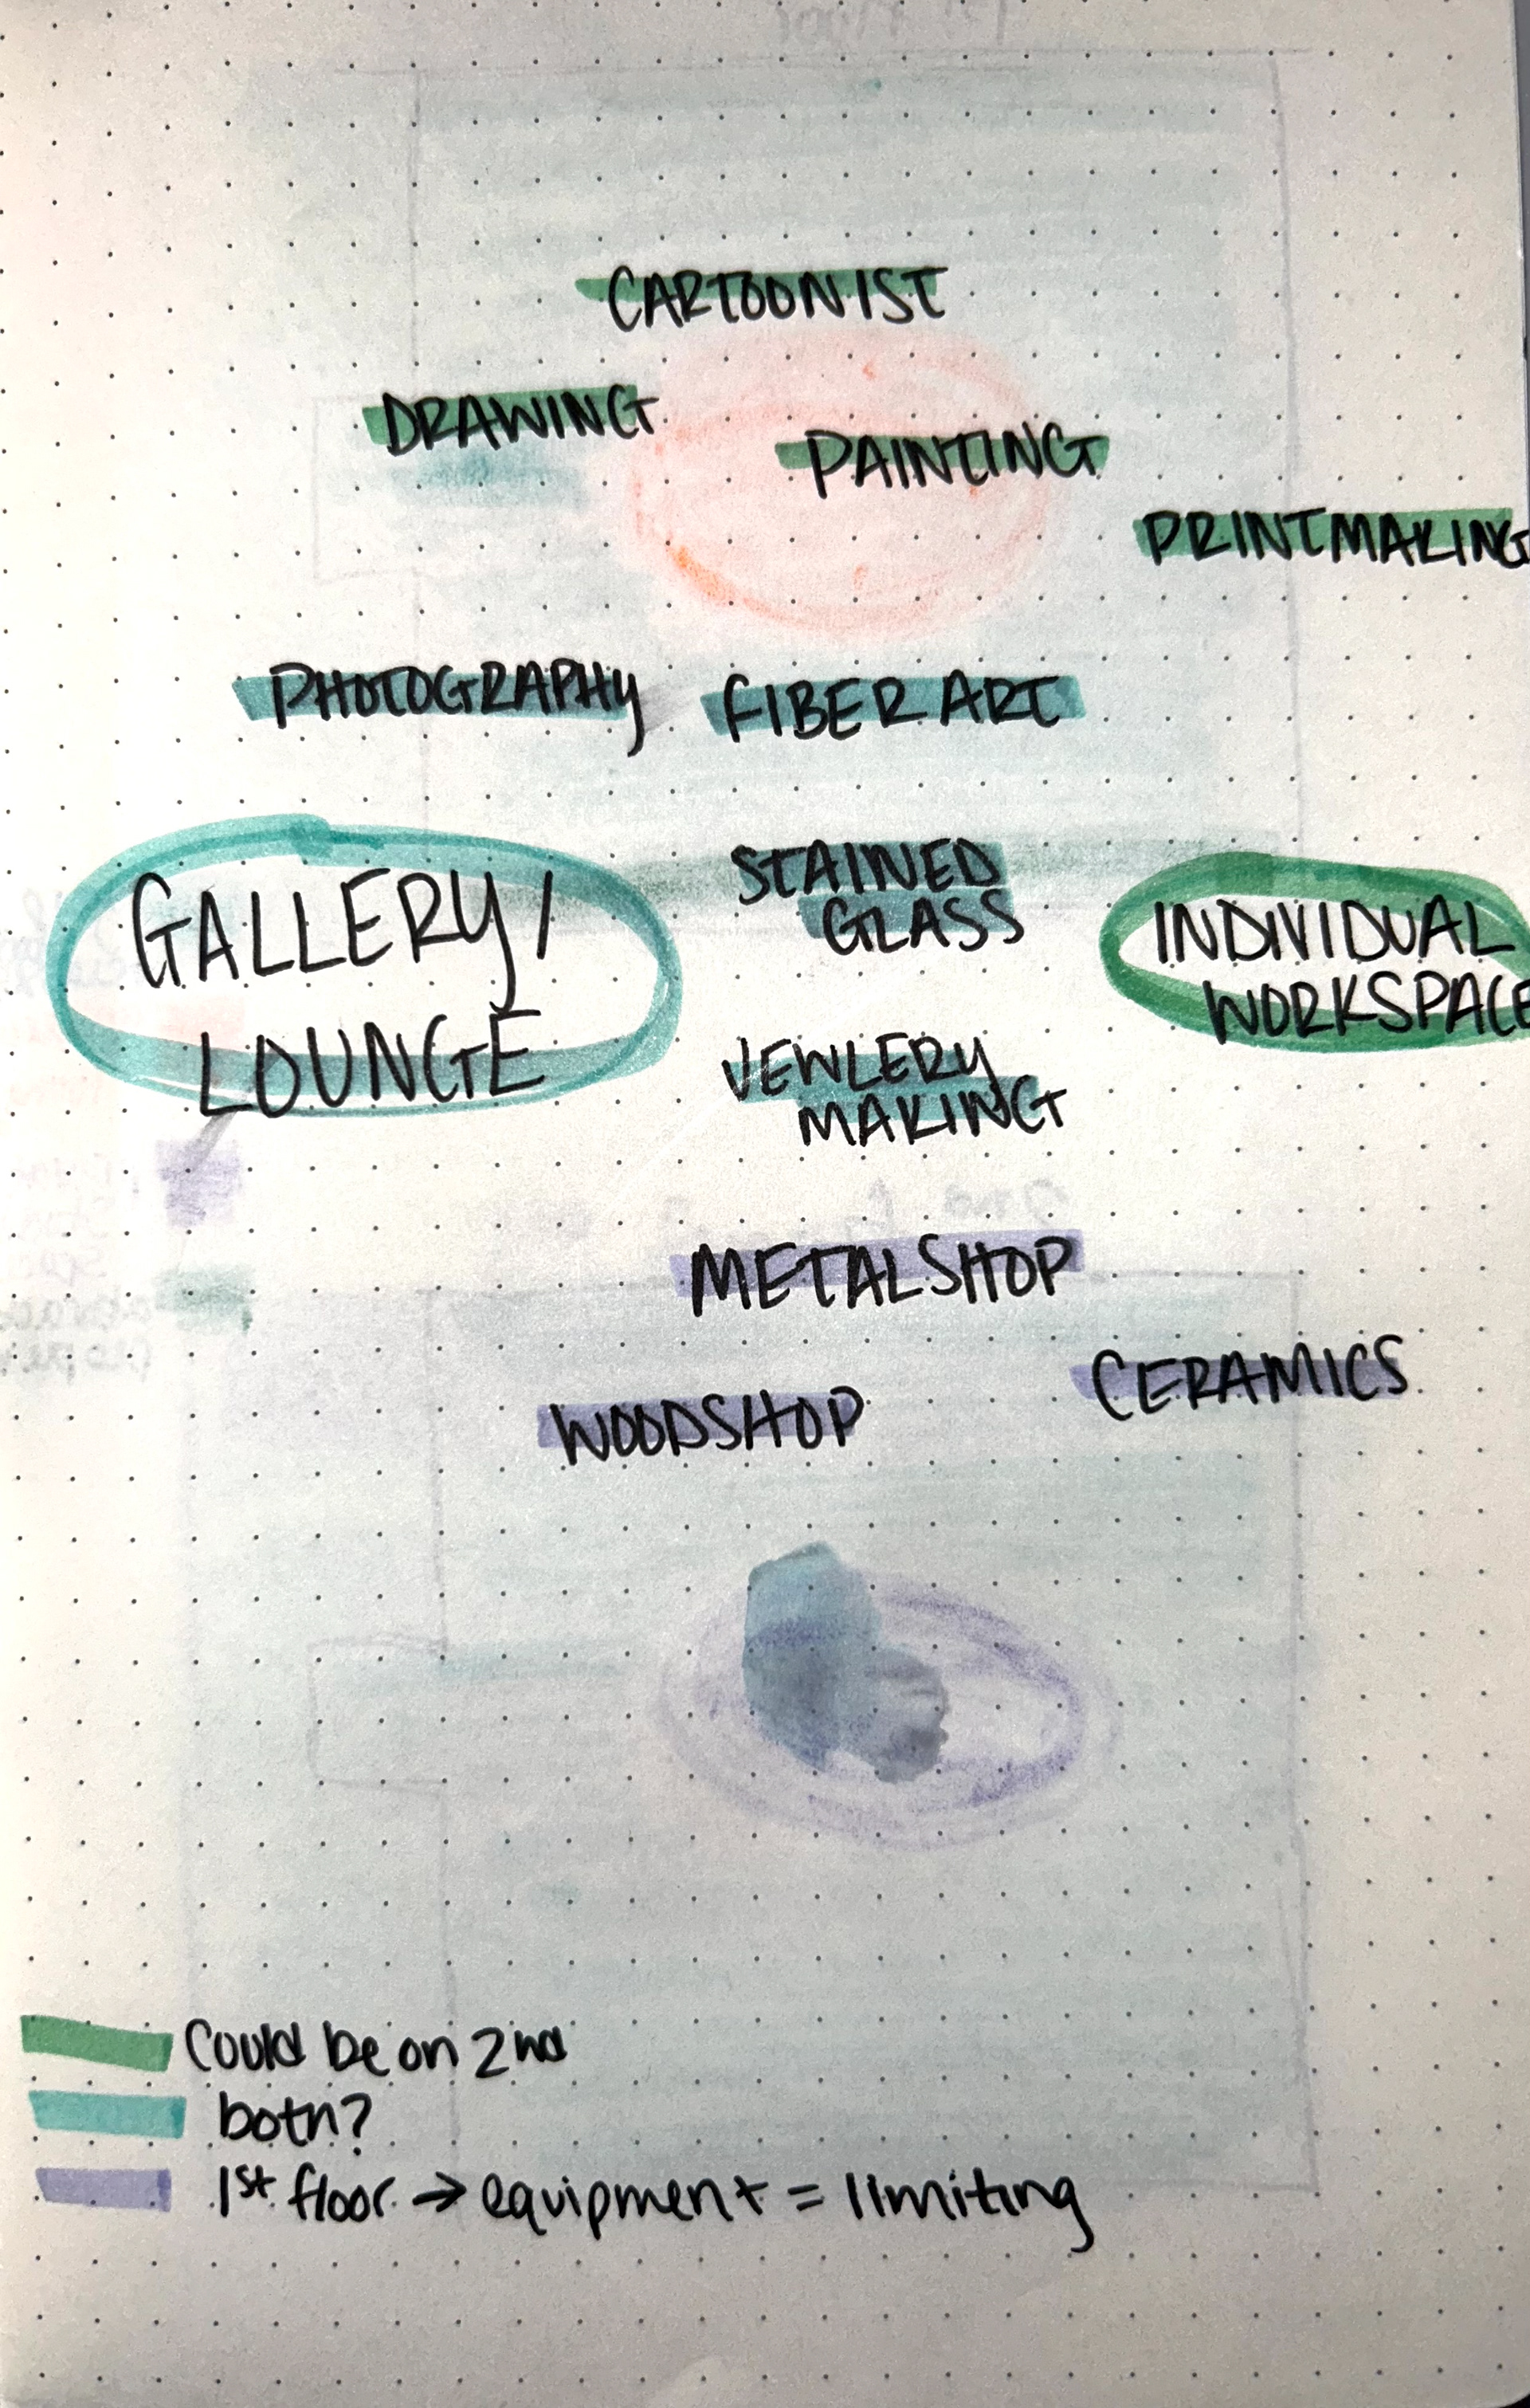 CARTOONIST
DRAWING
PAINTING
PRINTMAKING
PHOTOGRAPHY
FIBER ART
GALLERY /
LOUNGE
STAINED
GLASS
INDIVIDUAL
WORKSPACE
JEWLERY
MAKING
METALSHOP
CERAMICS
WOODSHOP
Could be on 2nd
both?
1st floor → equipment = limiting